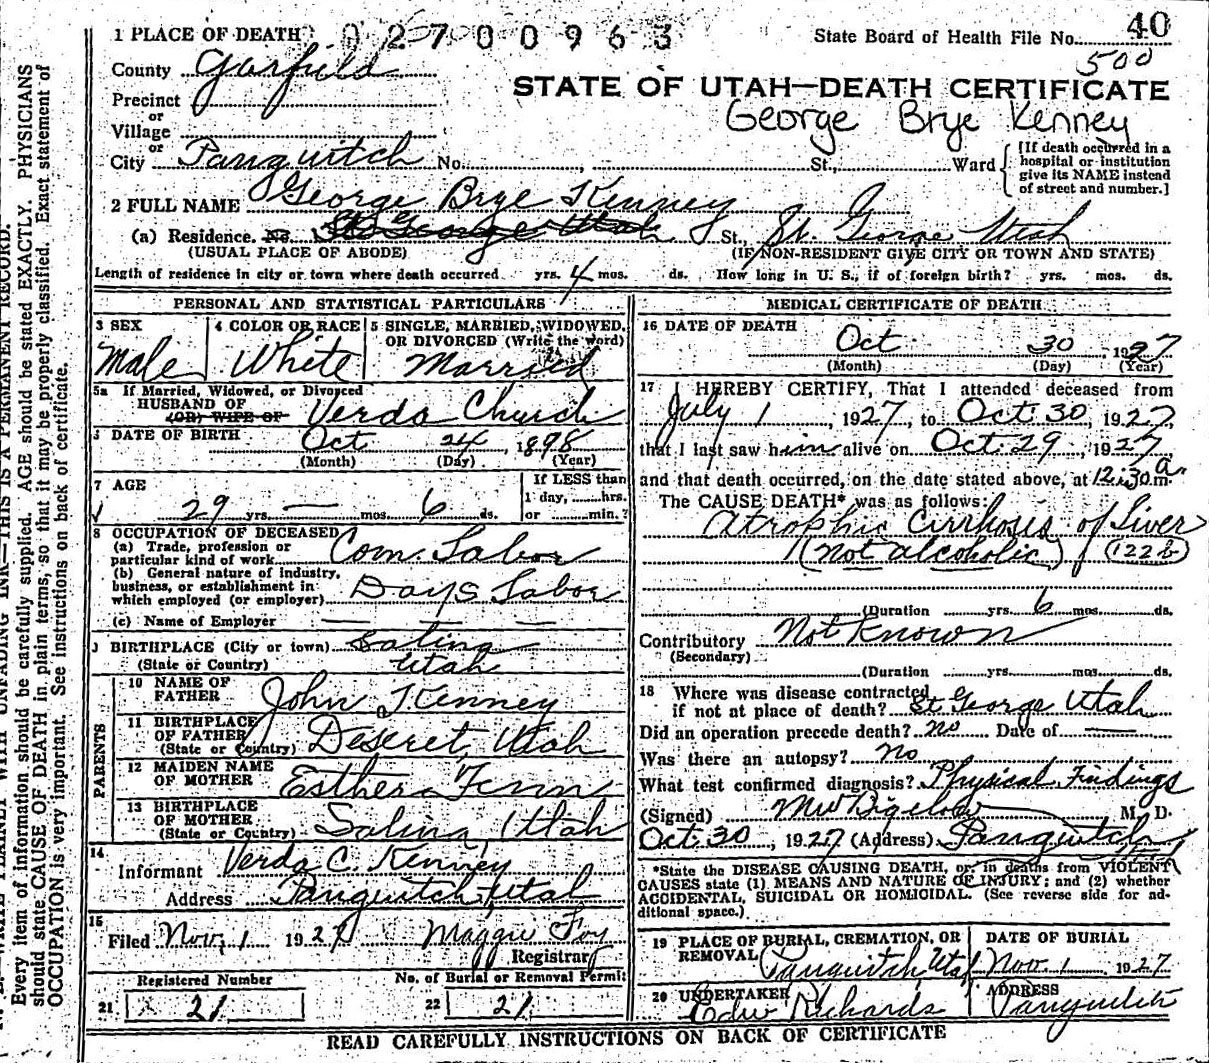 1 PLACE OF DEATH 02700963 State Board of Health File No. 40
500
County Garfield
STATE OF UTAH—DEATH CERTIFICATE
Precinct
or
George Brye Kenney
Village
or
City Panguitch No. , St., Ward
[If death occurred in a hospital or institution give its NAME instead of street and number.]
2 FULL NAME George Brye Kenney
(a) Residence. No. St. George Utah St., St. George Utah
(USUAL PLACE OF ABODE) (IF NON-RESIDENT GIVE CITY OR TOWN AND STATE)
Length of residence in city or town where death occurred yrs. 4 mos. ds. How long in U. S., if of foreign birth? yrs. mos. ds.
PERSONAL AND STATISTICAL PARTICULARS
3 SEX 4 COLOR OR RACE 5 SINGLE, MARRIED, WIDOWED,
OR DIVORCED (Write the word)
Male White Married
5a If Married, Widowed, or Divorced
HUSBAND OF Verda Church
(OR) WIFE OF
DATE OF BIRTH Oct 24, 1898
(Month) (Day) (Year)
7 AGE If LESS than
1 day, hrs.
29 yrs. — mos. 6 ds. or min.?
8 OCCUPATION OF DECEASED
(a) Trade, profession or
particular kind of work Com. Labor
(b) General nature of industry,
business, or establishment in
which employed (or employer) Days Labor
(c) Name of Employer — — —
BIRTHPLACE (City or town) Salina
(State or Country) Utah
PARENTS
10 NAME OF
FATHER John J Kenney
11 BIRTHPLACE
OF FATHER
(State or Country) Deseret, Utah
12 MAIDEN NAME
OF MOTHER Esther Fenn
13 BIRTHPLACE
OF MOTHER
(State or Country) Salina, Utah
14
Informant Verda C. Kenney
Address Panguitch, Utah
15
Filed Nov. 1 1927 Maggie Foy
Registrar
Registered Number No. of Burial or Removal Permit
21 21 22 21
MEDICAL CERTIFICATE OF DEATH
16 DATE OF DEATH
Oct 30, 1927
(Month) (Day) (Year)
17 I HEREBY CERTIFY, That I attended deceased from
July 1, 1927, to Oct. 30, 1927,
that I last saw him alive on Oct. 29, 1927,
and that death occurred, on the date stated above, at 12:30 a. m.
The CAUSE DEATH* was as follows:
Atrophic Cirrhosis of Liver
(not alcoholic) (122b)
(Duration yrs. 6 mos. ds.
Contributory Not Known
(Secondary)
(Duration yrs. mos. ds.
18 Where was disease contracted
if not at place of death? St. George Utah
Did an operation precede death? no Date of —
Was there an autopsy? No
What test confirmed diagnosis? Physical Findings
(Signed) MW Bigelow M. D.
Oct. 30, 1927 (Address) Panguitch
*State the DISEASE CAUSING DEATH, or, in deaths from VIOLENT
CAUSES state (1) MEANS AND NATURE OF INJURY; and (2) whether
ACCIDENTAL, SUICIDAL OR HOMICIDAL. (See reverse side for ad-
ditional space.)
19 PLACE OF BURIAL, CREMATION, OR DATE OF BURIAL
REMOVAL Panguitch, Utah Nov. 1 1927
20 UNDERTAKER ADDRESS
Edw Richards Panguitch
READ CAREFULLY INSTRUCTIONS ON BACK OF CERTIFICATE
WRITE PLAINLY WITH UNFADING INK—THIS IS A PERMANENT RECORD.
Every item of information should be carefully supplied. AGE should be stated EXACTLY. PHYSICIANS
should state CAUSE OF DEATH in plain terms, so that it may be properly classified. Exact statement of
OCCUPATION is very important. See instructions on back of certificate.